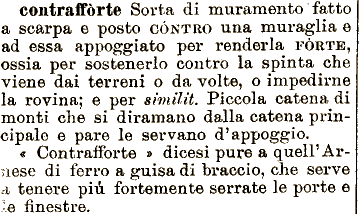 contraffòrte Sorta di muramento fatto
a scarpa e posto CÓNTRO una muraglia e
ad essa appoggiato per renderla FÒRTE,
ossia per sostenerlo contro la spinta che
viene dai terreni o da volte, o impedirne
la rovina; e per similit. Piccola catena di
monti che si diramano dalla catena prin-
cipale e pare le servano d'appoggio.
« Contrafforte » dicesi pure a quell'Ar-
nese di ferro a guisa di braccio, che serve
a tenere più fortemente serrate le porte e
le finestre.